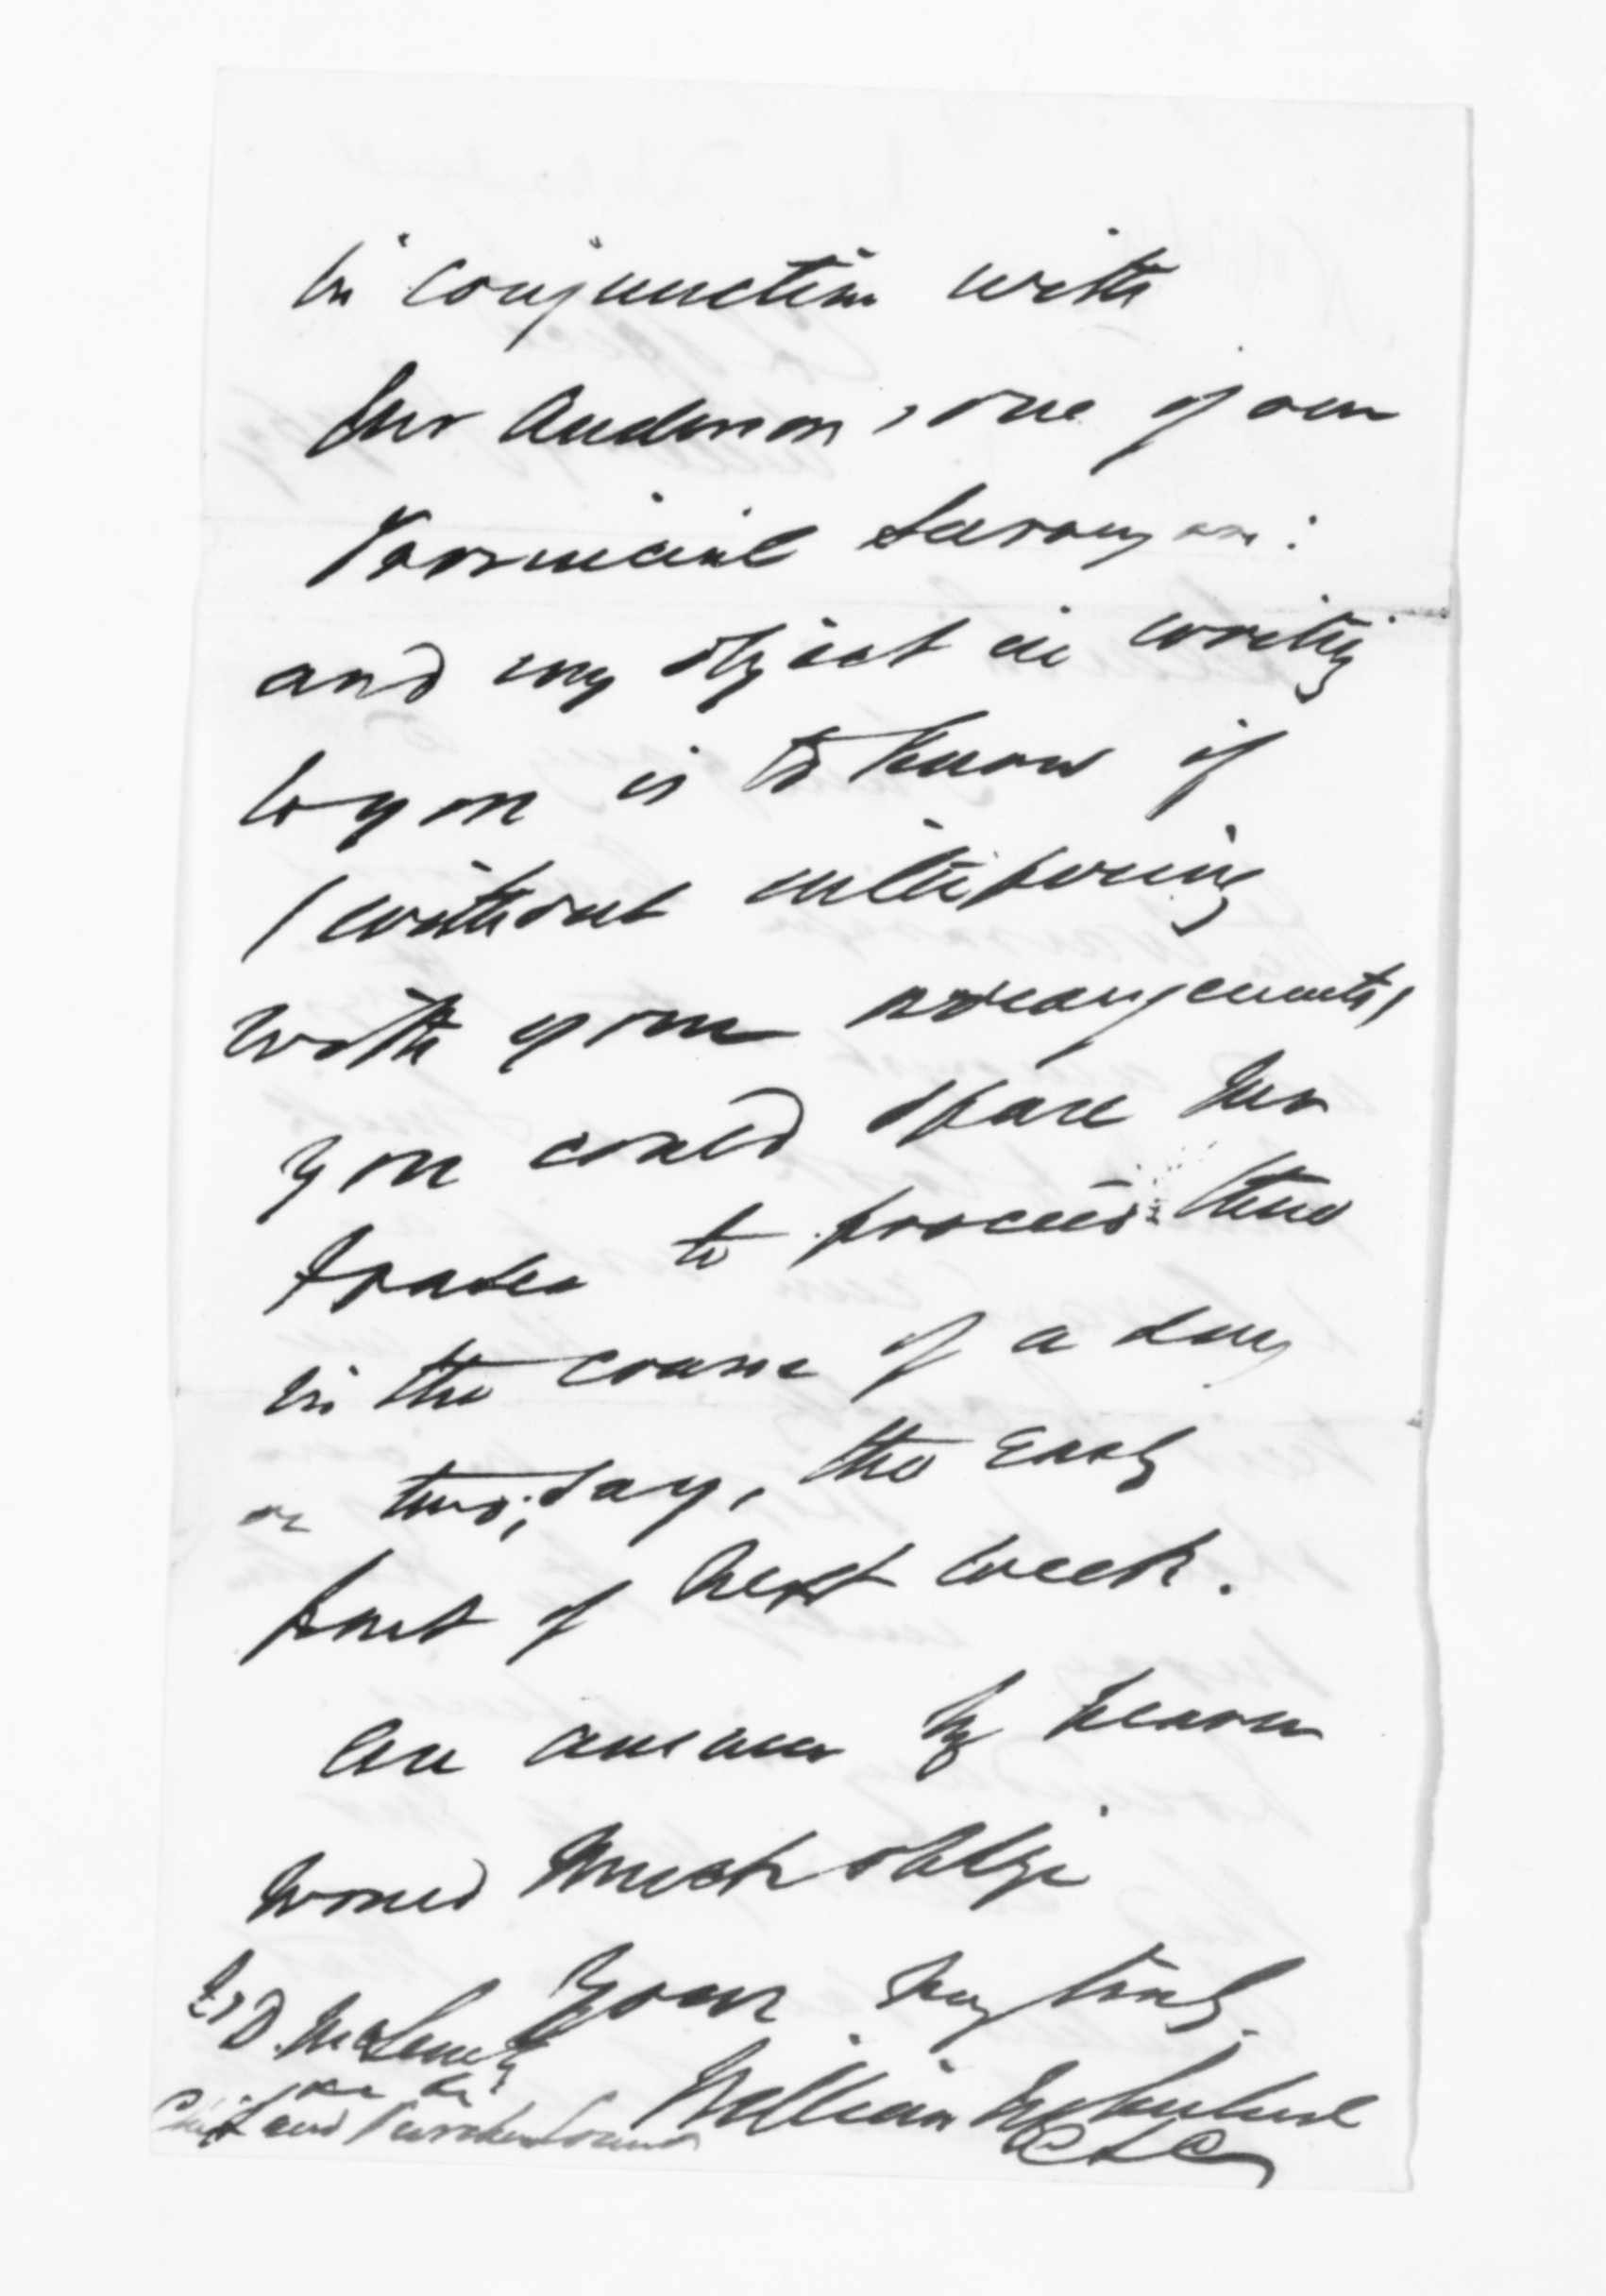 in conjunction with
Mr Anderson, one of our
Provincial Surveyors:
and my object in writing
to you is to know if
/ without interfering
with your arrangements,
you could spare Mr
Fraser to proceed there
in the course of a day
or two; say, the early
part of next week.
An answer by bearer
would much oblige
Yours very truly
William
CLC
To D. McLean Esq
Chief Land Purchase Commr